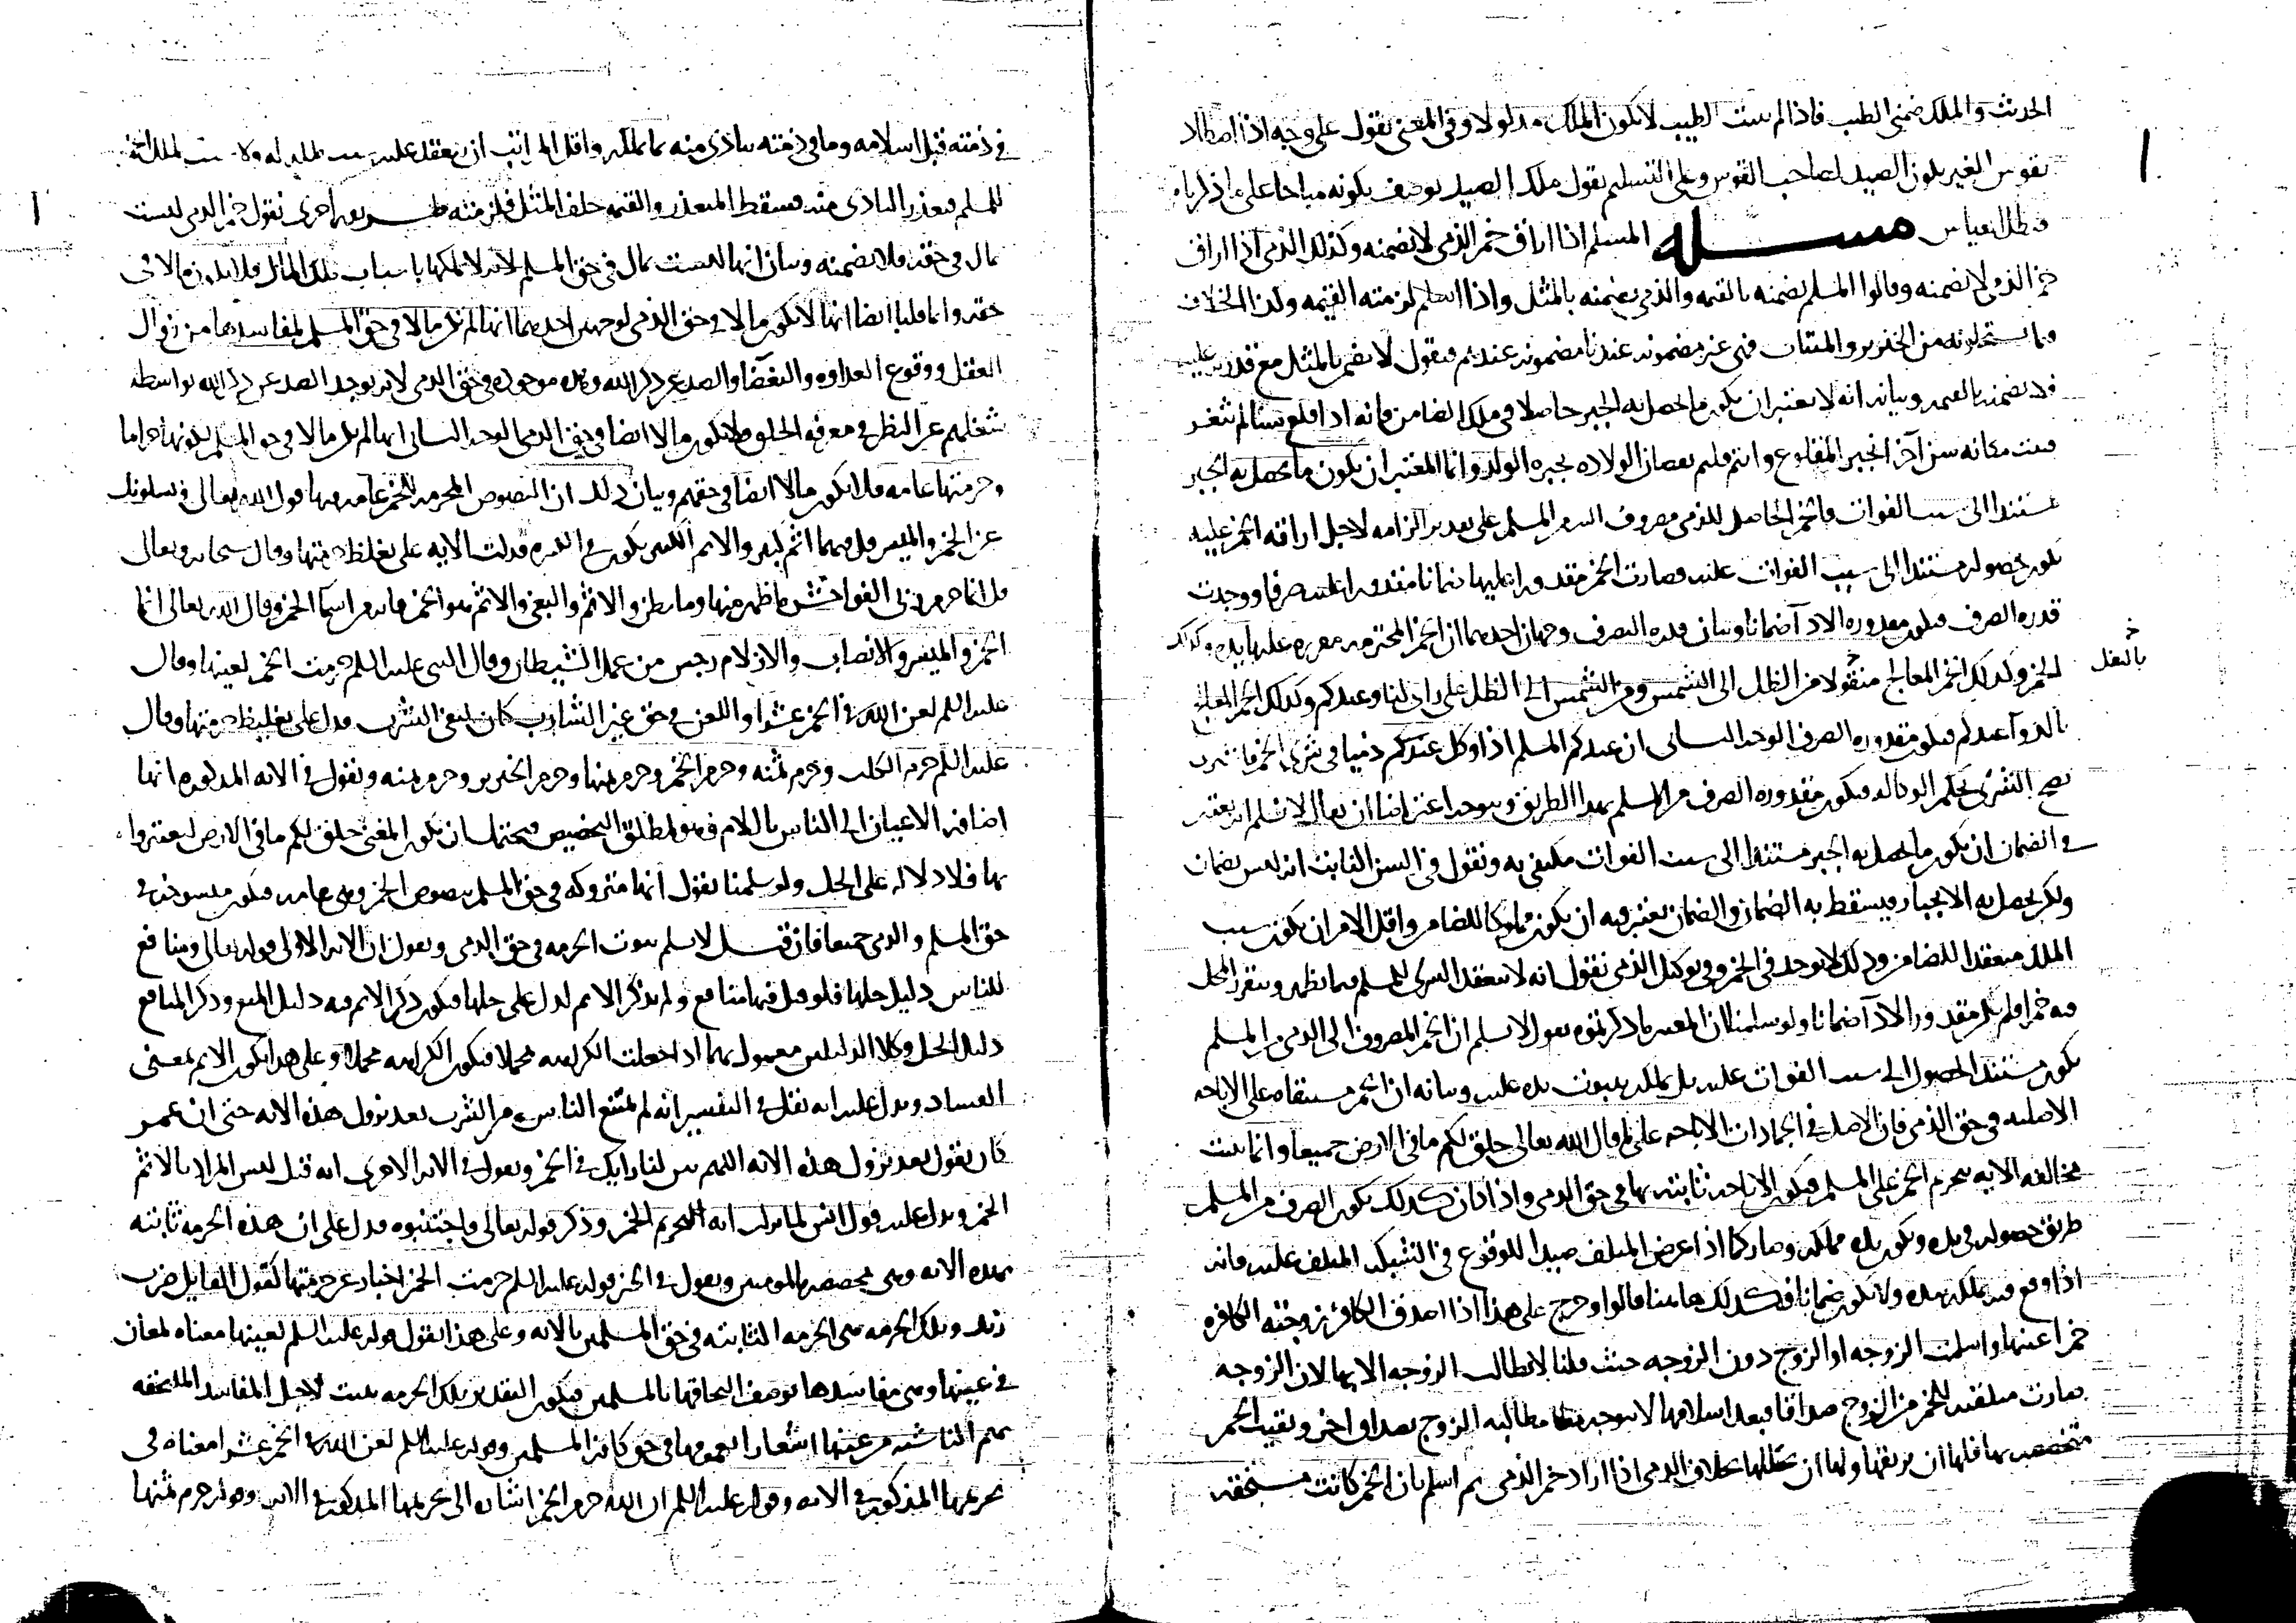 الخبيث والملك ضمنى الطيب فاذا لم يثبت الطيب لا يكون الملك مدلولا وفى المعنى نقول على وجه اذا اصطاد
بقوس الغير يكون الصيد لصاحب القوس وعلى التسليم نقول ملك الصيد بوصف بكونه مباحا على ما ذكرناه
فبطل القياس مسله المسلم اذا اراق خمر الذمى لا يضمنه وكذلك الذمى اذا اراق
خمر الذمى لا يضمنه وقالوا المسلم يضمنه بالقيمه والذمى يضمنه بالمثل واذا اسلم لزمته القيمه وكذا الخلاف
فيما يستحلونه من الخنزير والميتات فهى غير مضمونه عندنا مضمونه عندهم فنقول لا يضمن بالمثل مع قدرته عليه
فلا يضمنه بالقيمه وبيانه انه لا يعتبر ان يكون ما يحصل به الجبر حاصلا فى ملك الضامن فانه اذا قلع سنا لم يثغر
فنبت مكانه سن آخر انجبر المقلوع وانتم قلتم نقصان الولاده يجبره الولد وانما المعتبر ان يكون ما يحصل به الجبر
مستندا الى سبب الفوات فالخمر الحاصل للذمى مصروف اليه من المسلم على تقدير الزامه لاجل اراقة الخمر عليه
يكون حصوله مستندا الى سبب الفوات عليه وصارت الخمر مقدورا عليها ضمانا مقدورا عليه صرفا ووجدت
قدره الصرف فيكون مقدوره الاداء ضمانا وبيان قدره التصرف وجهان احدهما ان الخمر المحترمه مقرره عليها يده وكذلك
الخمر وكذلك الخمر المعالج منقولا من الظل الى الشمس ومن الشمس الى الظل على راى لنا وعندكم وكذلك الخمر المعالج
بالنقل
بالدواء عندكم فيكون مقدوره الصرف الوجه الثانى ان عندكم المسلم اذا وكل عندكم ذميا فى شرى الخمر فاشترى
يصح الشرى بحكم الوكاله فيكون مقدوره الصرف من المسلم بهذا الطريق وتتوجه اعتراضنا ان يقال لا نسلم انه يعتبر
فى الضمان ان يكون ما يحصل به الجبر مستندا الى سبب الفوات مكتفى به ونقول فى السن النابت انه ليس بضمان
ولكن يحصل به الانجبار فيسقط به الضمان والضمان يعتبر فيه ان يكون مملوكا للضامن واقل الامر ان يكون سبب
الملك منعقدا للضامن وذلك لا يوجد فى الخمر وفى توكيل الذمى نقول انه لا ينعقد الشرى للمسلم فيما يظهر ويتقرر الحل
فيه خمرا فلم يكن مقدورا الاداء ضمانا ولو سلمنا ان المعتبر ما ذكرتموه نقول لا نسلم ان الخمر المصروف الى الذمى من المسلم
يكون مستند الحصول الى سبب الفوات عليه بل يملكه بثبوت يده عليه وبيانه ان الخمر مستبقاه على الاباحه
الاصليه فى حق الذمى فان الاصل فى الجمادات الاباحه على ما قال الله تعالى خلق لكم ما فى الارض جميعا وانما يثبت
مخالفه الايه بتحريم الخمر على المسلم فيكون الاباحه ثابته بها فى حق الذمى واذا كان كذلك يكون الصرف من المسلم
طريق حصوله فى يده ويكون يده مملكه وصار كما اذا عرض المتلف صيدا للوقوع فى الشبكه المتلف عليه فانه
اذا وقع فيه يملكه بيده ولا يكون ضمانا فكذلك هاهنا قالوا وخرج على هذا اذا اصدق الكافر زوجته الكافره
خمرا عينها واسلمت الزوجه او الزوج دون الزوجه حيث قلنا لا تطالب الزوجه الا بها لان الزوجه
صارت متلقنه للخمر من الزوج صداقا فبعد اسلامها لا يتوجه مطالبه الزوج بصداق اخر وتقيد الخمر
متخصصه بها فلها ان تريقها ولها ان تخللها بخلاف الذمى اذا اراد خمر الذمى ثم اسلم فان الخمر كانت مستحقه
فى ذمته قبل اسلامه وما فى ذمته يتاذى منه بما يملكه واقل المراتب ان ينعقد عليه سبب ملكه له ولا سبب لملك الخمر
للمسلم فتعذر التاذى منه فسقط المتعذر والقيمه خلف المثل فلزمته طريقه اخرى نقول خمر الذمى ليست
بمال فى حقه فلا يضمنه وبيان انها ليست بمال فى حق المسلم لانه لا يملكها باسباب تملك المال فلا يكون مالا فى
حقه وانما قلنا ايضا انها لا يكون مالا فى حق الذمى لوجهين احدهما انها لم تكن مالا فى حق المسلم لمفاسدها من زوال
العقل ووقوع العداوه والبغضاء والصد عن ذكر الله وهذه موجوده فى حق الذمى لانه يوجد الصد عن ذكر الله بواسطه
شغلهم عن النظر فى معرفه الخلق فلا تكون مالا ايضا فى حق الذمى الوجه الثانى انها لم تكن مالا فى حق المسلم لكونها حراما
وحرمتها عامه فلا يكون مالا ايضا فى حقهم وبيان ذلك ان النصوص المحرمه للخمر عامه منها قول الله تعالى يسلونك
عن الخمر والميسر قل فيهما اثم كبير والاثم الكبير يكون فى الكبيره فدلت الايه على تغليظ حرمتها وقال سبحانه وتعالى
قل انما حرم ربى الفواحش ما ظهر منها وما بطن والاثم والبغى والاثم هو الخمر فانه من اسما الخمر وقال الله تعالى انما
الخمر والميسر والانصاب والازلام رجس من عمل الشيطان وقال النبى عليه السلم حرمت الخمر لعينها وقال
عليه السلم لعن الله فى الخمر عشرا واللعن فى حق غير الشارب كان لمعنى الشرب فدل على تغليظ حرمتها وقال
عليه السلم حرم الكلب وحرم ثمنه وحرم الخمر وحرم ثمنها وحرم الخنزير وحرم ثمنه ونقول فى الايه المذكوره انها
اضافه الاعيان الى الناس باللام فهو لمطلق التخصيص فيحتمل ان يكون المعنى خلق لكم ما فى الارض لتعتبروا
بها فلا دلاله على الحل ولو سلمنا نقول انها متروكه فى حق المسلم بنصوص الخمر وهى عامه فيكون منسوخه فى
حق المسلم والذمى جميعا فان قيل لا نسلم ثبوت الحرمه فى حق الذمى ونقول ان الايه الاولى قوله تعالى ومنافع
للناس دليل حلها فلو قيل فيها منافع ولم يذكر الاثم لدل على حلها فيكون ذكر الاثم فيه دليل المنع وذكر المنافع
دليل الحل وكلا الدليلين معمول بهما اذا جعلت الكراهيه محملا فيكون الكراهيه محملا وعلى هذا يكون الاثم بمعنى
الفساد ويدل عليه انه نقل فى التفسير انه لم يمتنع الناس من الشرب بعد نزول هذه الايه حتى ان عمر
كان يقول بعد نزول هذه الايه اللهم بين لنا رايك فى الخمر ونقول فى الايه الاخرى انه قيل ليس المراد بالاثم
الخمر ويدل عليه قول انس لما نزلت ايه التحريم الخمر وذكر قوله تعالى فاجتنبوه فدل على ان هذه الحرمه ثابته
بهذه الايه وهى مختصه بالمومنين ونقول فى الخبر قوله عليه السلم حرمت الخمر اخبار عن حرمتها كقول القايل ضرب
زيد وتلك الحرمه هى الحرمه الثابته فى حق المسلمين بالايه وعلى هذا نقول قوله عليه السلم لعينها معناه لمعان
فى عينها وهى مفاسدها بوصف التحاقها بالمسلمين فيكون التقدير بتلك الحرمه يثبت لاجل المفاسد الملتحقه
بهم الناشيه من عينها اشعارا بعمومها فى حق كافه المسلمين وقوله عليه السلم لعن الله فى الخمر عشرا معناه فى
تحريمها المذكور فى الايه وقوله عليه السلم ان الله حرم الخمر اشاره الى تحريمها المذكور فى الايه وقوله حرم ثمنها